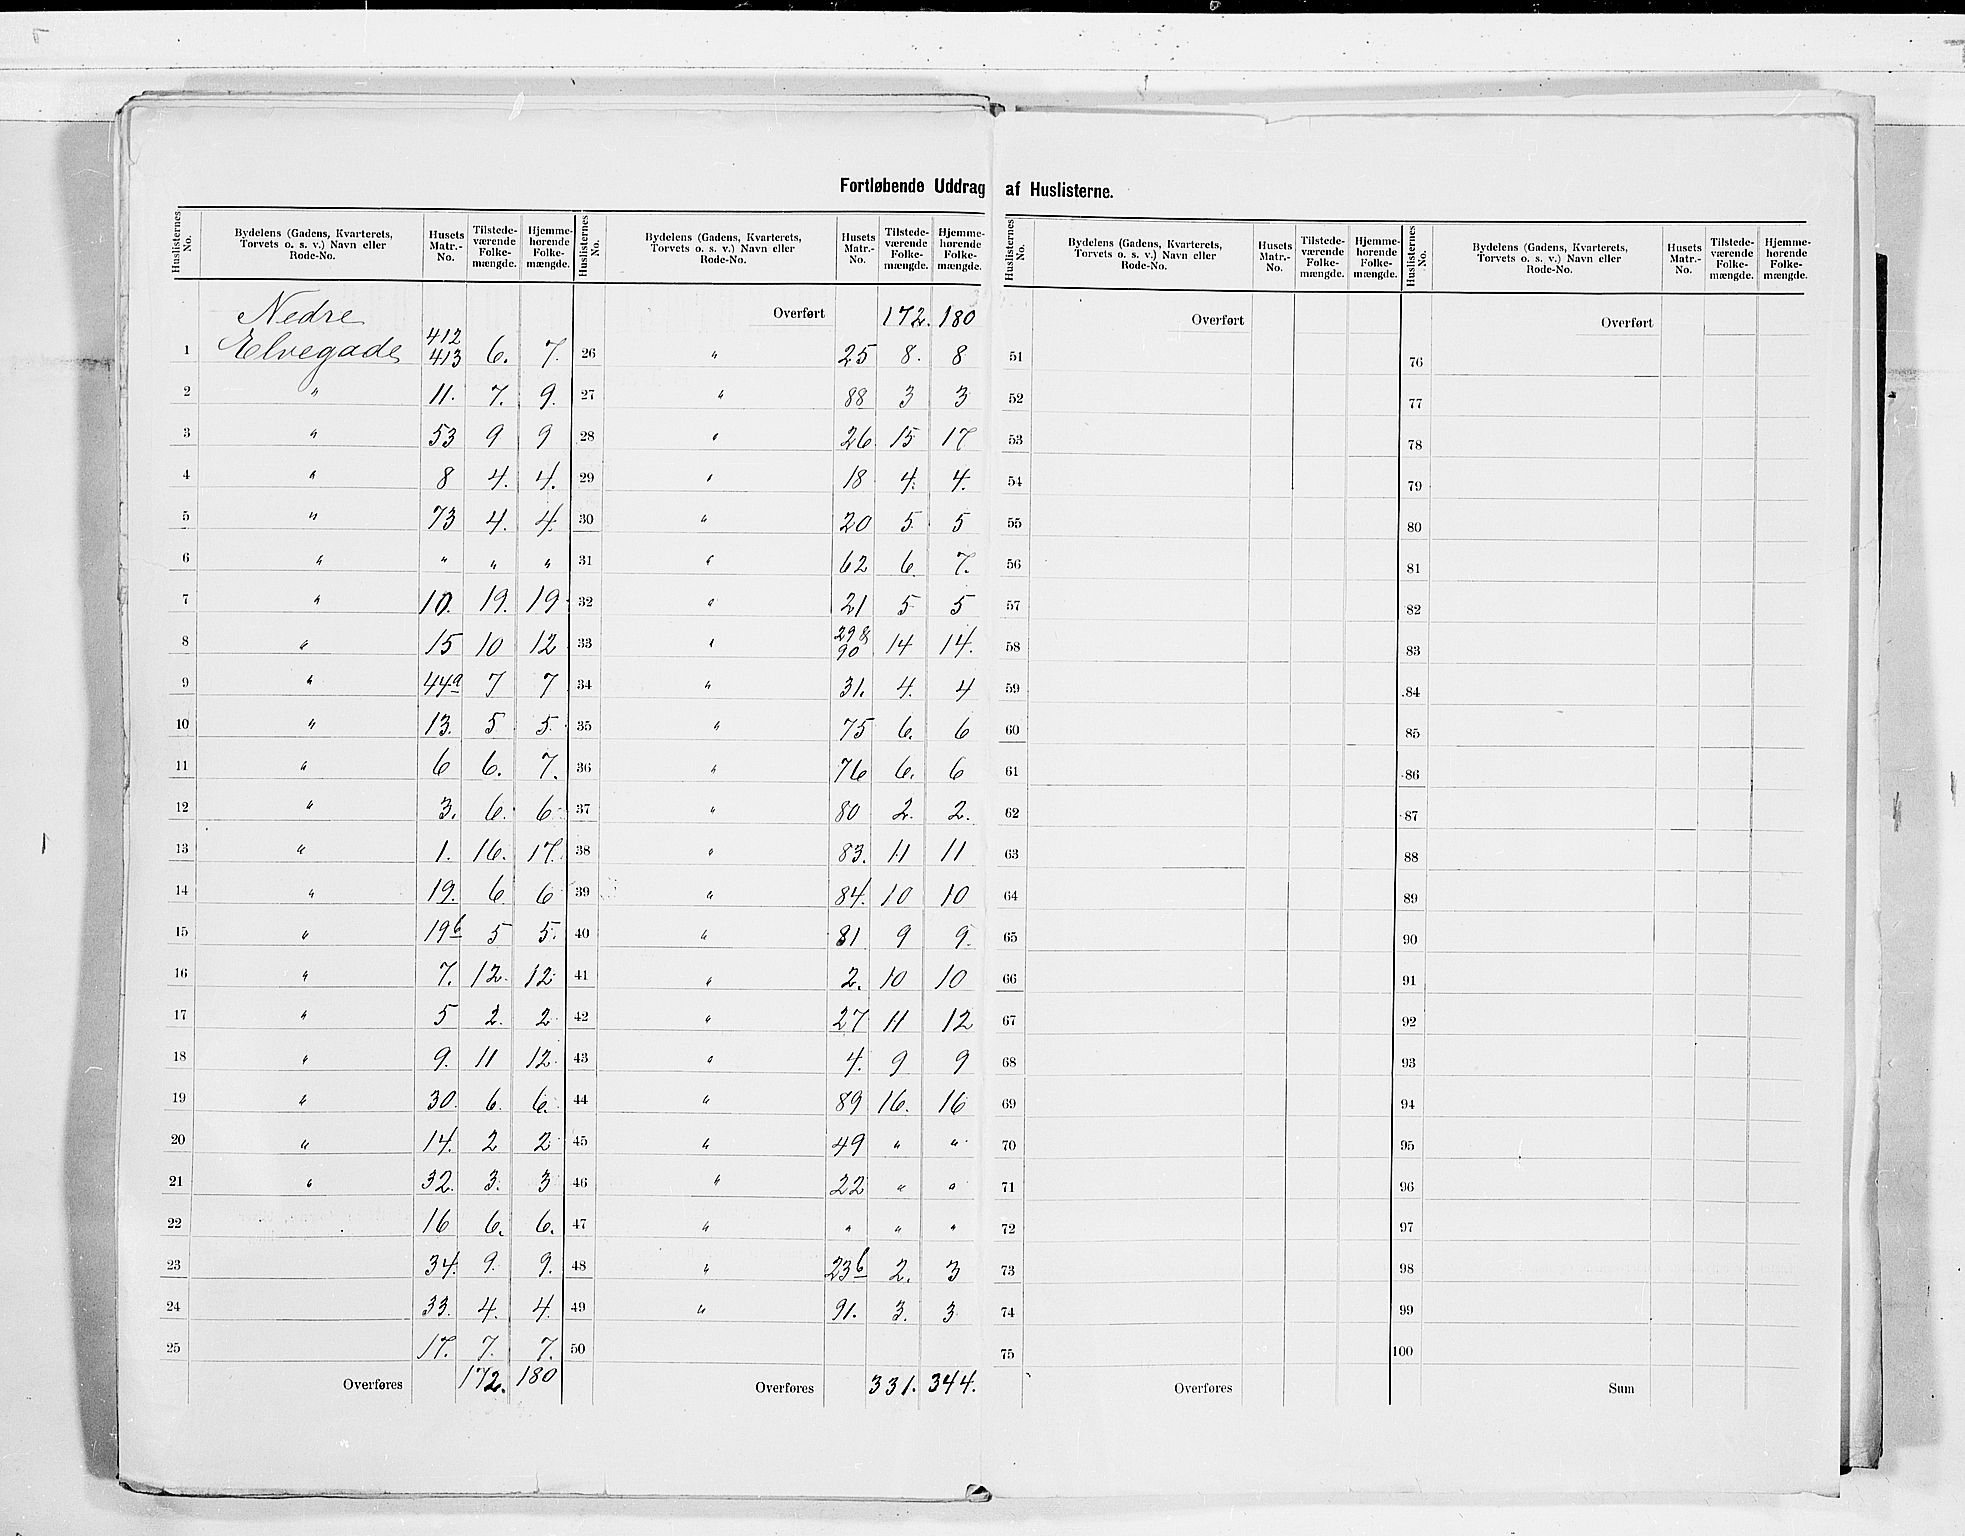 Fortløbende Uddrag af Huslisterne.
Huslisternes No. | Bydelens (Gadens, Kvarterets, Torvets o. s. v.) Navn eller Rode-No. | Husets Matr.-No. | Tilstedeværende Folkemængde. | Hjemmehørende Folkemængde.
Nedre
1 Elvegade 412 413 6. 7.
2 " 11. 7. 9.
3 " 53 9 9
4 " 8 4. 4.
5 " 73 4. 4.
6 " " " "
7 " 10. 19. 19
8 " 15 10 12
9 " 44a 7 7
10 " 13. 5 5
11 " 6 6. 7.
12 " 3. 6. 6
13 " 1. 16. 17.
14 " 19. 6. 6
15 " 19b 5 5.
16 " 7. 12. 12
17 " 5 2. 2.
18 " 9. 11 12.
19 " 30. 6. 6.
20 " 14. 2 2
21 " 32. 3. 3
22 16 6. 6.
23 34. 9. 9.
24 33. 4. 4.
25 17. 7. 7.
Overføres 172. 180
Huslisternes No. | Bydelens (Gadens, Kvarterets, Torvets o. s. v.) Navn eller Rode-No. | Husets Matr.-No. | Tilstedeværende Folkemængde. | Hjemmehørende Folkemængde.
Overført 172. 180
26 " 25 8. 8
27 " 88 3 3
28 " 26. 15 17
29 " 18 4. 4.
30 " 20 5 5
31 " 62 6. 7.
32 " 21 5 5
33 " 298 90 14 14.
34 " 31. 4. 4
35 " 75 6. 6
36 " 76 6. 6
37 " 80 2. 2.
38 " 83. 11 11
39 " 84. 10 10
40 " 81 9 9.
41 " 2. 10 10
42 " 27 11 12
43 " 4. 9 9
44 " 89 16. 16
45 " 49 " "
46 " 22 " "
47 " " " "
48 " 23b 2. 3
49 " 91. 3. 3
50
Overføres 331. 344.
Huslisternes No. | Bydelens (Gadens, Kvarterets, Torvets o. s. v.) Navn eller Rode-No. | Husets Matr.-No. | Tilstedeværende Folkemængde. | Hjemmehørende Folkemængde.
Overført
51
52
53
54
55
56
57
58
59
60
61
62
63
64
65
66
67
68
69
70
71
72
73
74
75
Overføres
Huslisternes No. | Bydelens (Gadens, Kvarterets, Torvets o. s. v.) Navn eller Rode-No. | Husets Matr.-No. | Tilstedeværende Folkemængde. | Hjemmehørende Folkemængde.
Overført
76
77
78
79
80
81
82
83
84
85
86
87
88
89
90
91
92
93
94
95
96
97
98
99
100
Sum